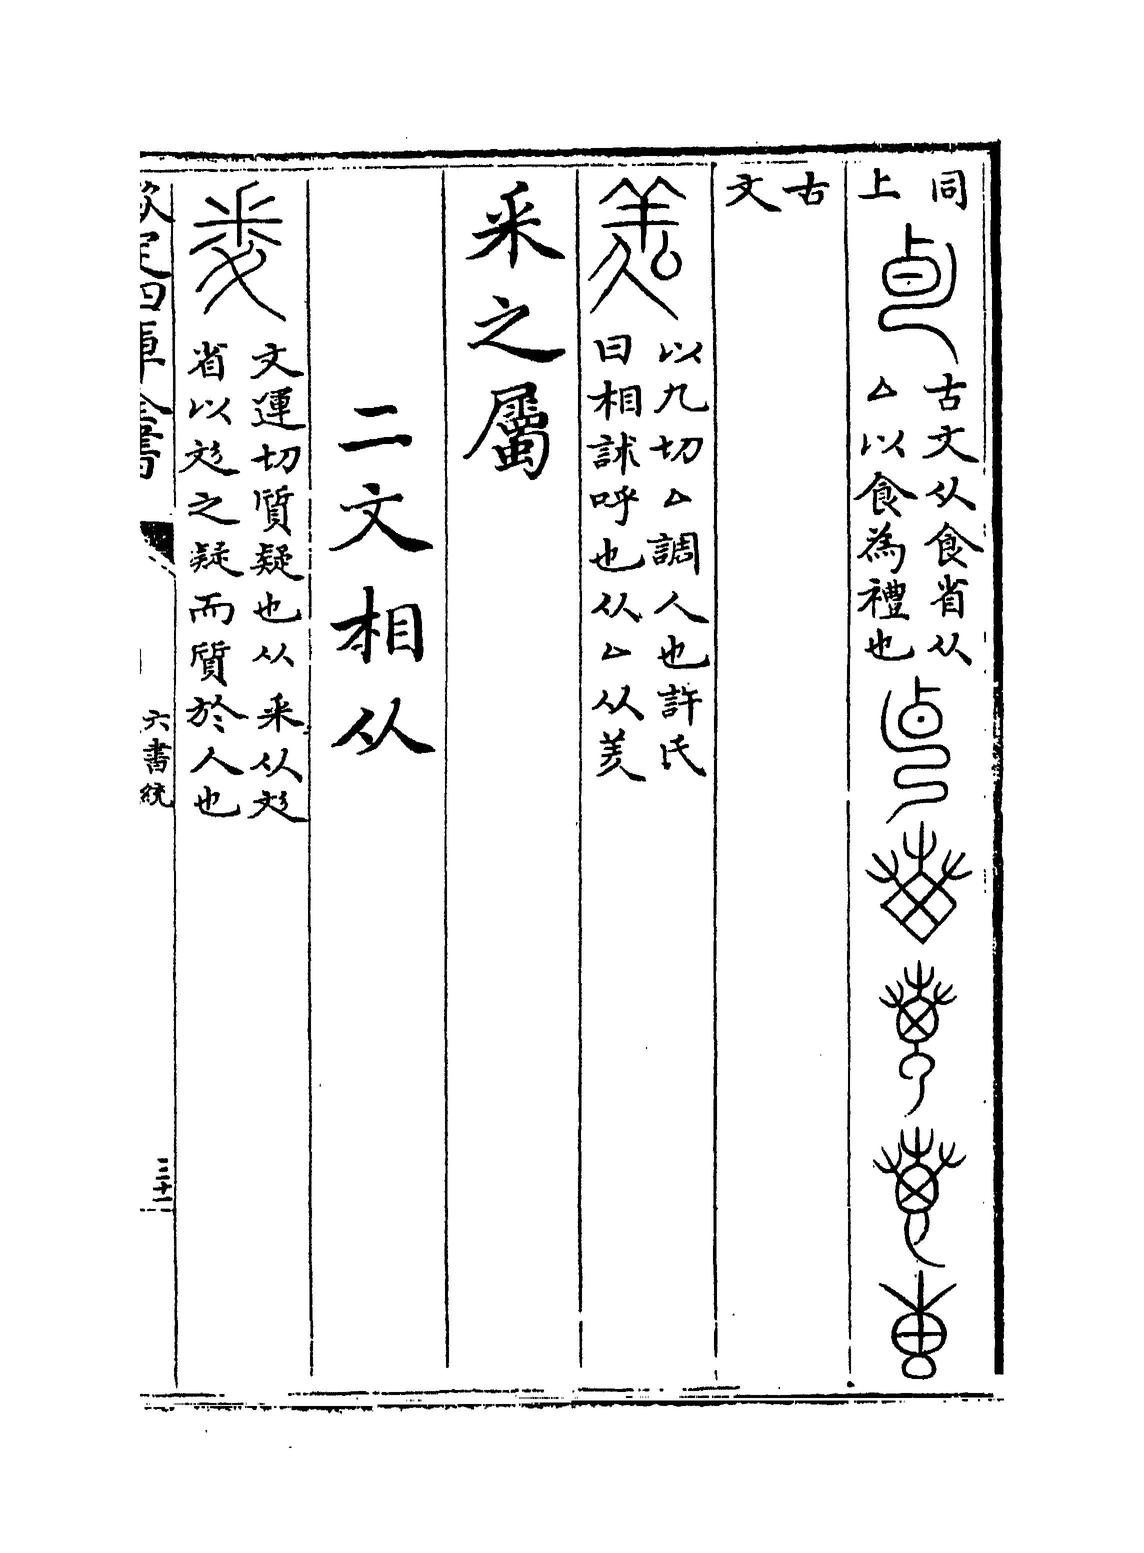 同上
古文从食省从厶以食為禮也
古文
以九切厶調人也許氏曰相訹呼也从厶从羑
釆之屬
二文相从
文運切質疑也从釆从彣省以彣之疑而質於人也
欽定四庫全書
六書統
三十一